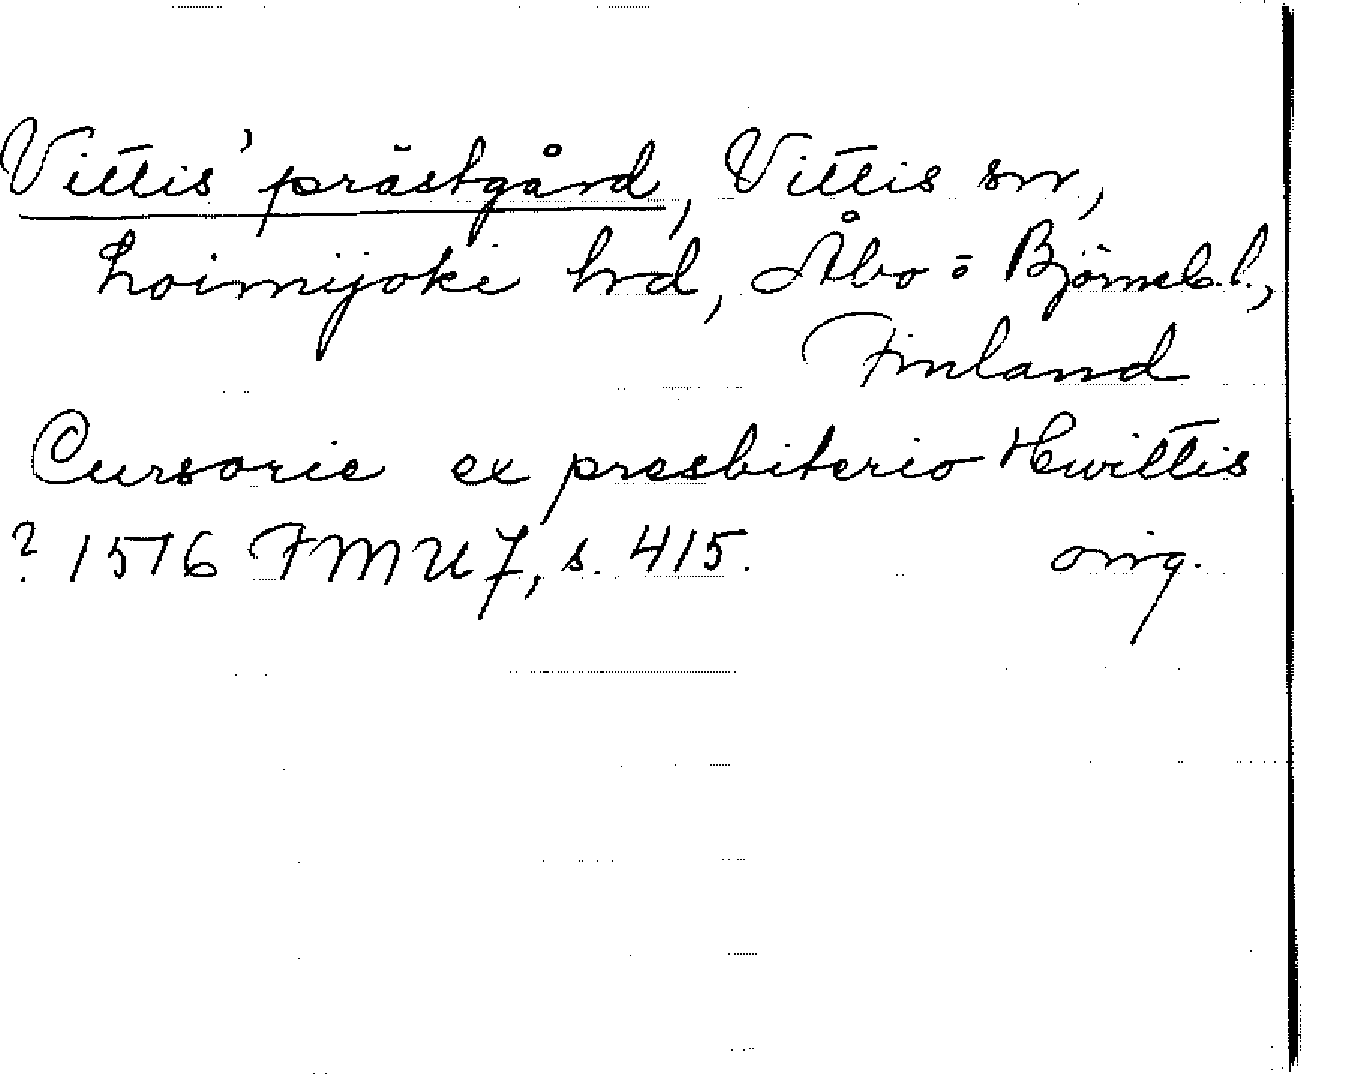 Vittis' prästgård, Vittis sn,
Loimijoki hrd, Åbo o Björneb. l.,
Finland
Cursorie ex presbiterio Hwittis
? 1516 FMU 7, s. 415. orig.